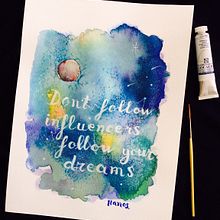 Dont follow
influencers
follow your
dreams